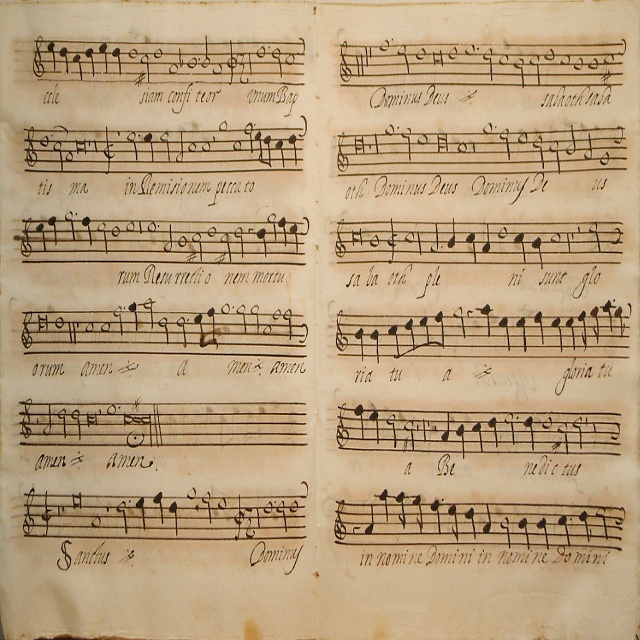 cele siam confi teor vnum Bap
tis ma in Remisionem pecca to
rum Resurrectio nem mortu
orum amen a men amen
amen amen.
Sanctus Dominus
Dominus Deus sabaoth saba
oth Dominus Deus Dominus De us
sa ba oth ple ni sunt glo
ria tu a gloria tu
a Be nedictus
in nomine Domini in nomine Domini